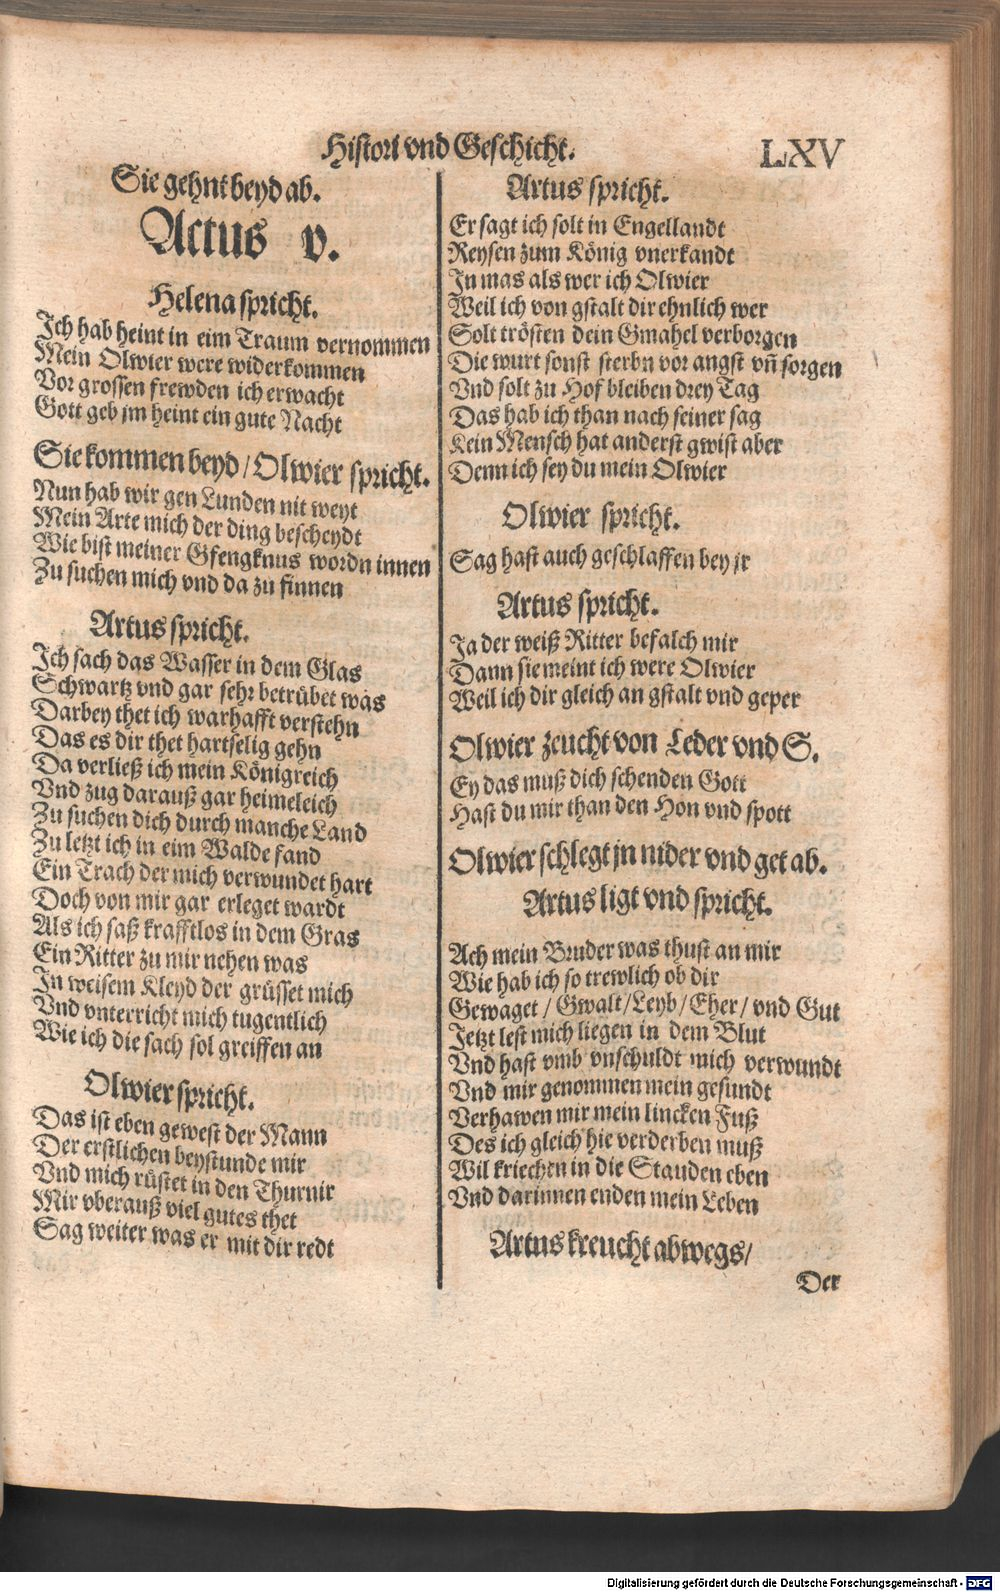 Histori vnd Geschicht.
LXV
Sie gehnt beyd ab.
Actus v.
Helena spricht.
Ich hab heint in eim Traum vernommen
Mein Olwier were widerkommen
Vor grossen frewden ich erwacht
Gott geb jm heint ein gute Nacht
Sie kommen beyd / Olwier spricht.
Nun hab wir gen Lunden nit weyt
Mein Arte mich der ding bescheydt
Wie bist meiner Gfengknus wordn innen
Zu suchen mich vnd da zu finnen
Artus spricht.
Ich sach das Wasser in dem Glas
Schwartz vnd gar sehr betrübet was
Darbey thet ich warhafft verstehn
Das es dir thet hartselig gehn
Da verließ ich mein Königreich
Vnd zug darauß gar heimeleich
Zu suchen dich durch manche Land
Zu letzt ich in eim Walde fand
Ein Trach der mich verwundet hart
Doch von mir gar erleget wardt
Als ich saß krafftlos in dem Gras
Ein Ritter zu mir nehen was
In weisem Kleyd der grüsset mich
Vnd vnterricht mich tugentlich
Wie ich die sach sol greiffen an
Olwier spricht.
Das ist eben gewest der Mann
Der erstlichen beystunde mir
Vnd mich rüstet in den Thurnir
Mir vberauß viel gutes thet
Sag weiter was er mit dir redt
Artus spricht.
Er sagt ich solt in Engellandt
Reysen zum König vnerkandt
In mas als wer ich Olwier
Weil ich von gstalt dir ehnlich wer
Solt trösten dein Gmahel verborgen
Die wurt sonst sterbn vor angst vñ sorgen
Vnd solt zu Hof bleiben drey Tag
Das hab ich than nach seiner sag
Kein Mensch hat anderst gwist aber
Denn ich sey du mein Olwier
Olwier spricht.
Sag hast auch geschlaffen bey jr
Artus spricht.
Ja der weiß Ritter befalch mir
Dann sie meint ich were Olwier
Weil ich dir gleich an gstalt vnd geper
Olwier zeucht von Leder vnd S.
Ey das muß dich schenden Gott
Hast du mir than den Hon vnd spott
Olwier schlegt jn nider vnd get ab.
Artus ligt vnd spricht.
Ach mein Bruder was thust an mir
Wie hab ich so trewlich ob dir
Gewaget / Gwalt / Leyb / Eher / vnd Gut
Jetzt lest mich liegen in dem Blut
Vnd hast vmb vnschuldt mich verwundt
Vnd mir genommen mein gesundt
Verhawen mir mein lincken Fuß
Des ich gleich hie verderben muß
Wil kriechen in die Stauden eben
Vnd darinnen enden mein Leben
Artus kreucht abwegs /
Der
Digitalisierung gefördert durch die Deutsche Forschungsgemeinschaft - DFG